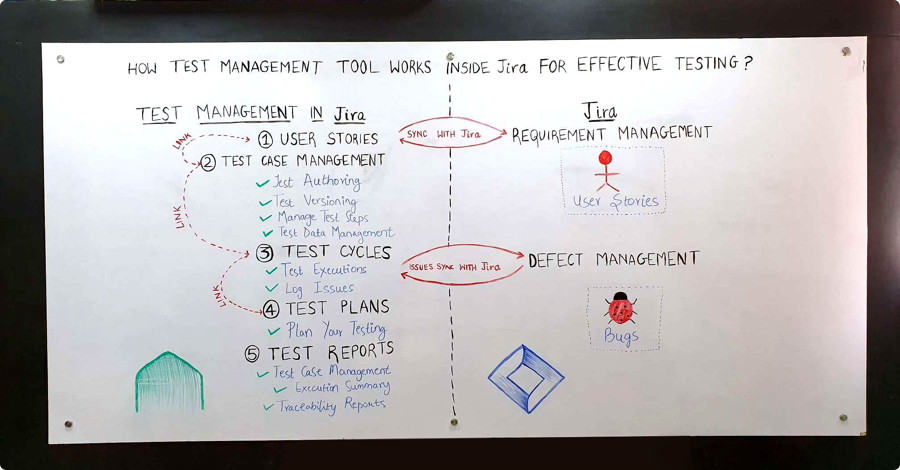 HOW TEST MANAGEMENT TOOL WORKS INSIDE Jira FOR EFFECTIVE TESTING?
TEST MANAGEMENT IN Jira
LINK
① USER STORIES
② TEST CASE MANAGEMENT
✓ Test Authoring
✓ Test Versioning
✓ Manage Test Steps
✓ Test Data Management
LINK
③ TEST CYCLES
✓ Test Executions
✓ Log Issues
LINK
④ TEST PLANS
✓ Plan Your Testing
⑤ TEST REPORTS
✓ Test Case Management
✓ Execution Summary
✓ Traceability Reports
SYNC WITH Jira
ISSUES SYNC WITH Jira
Jira
REQUIREMENT MANAGEMENT
User Stories
DEFECT MANAGEMENT
Bugs